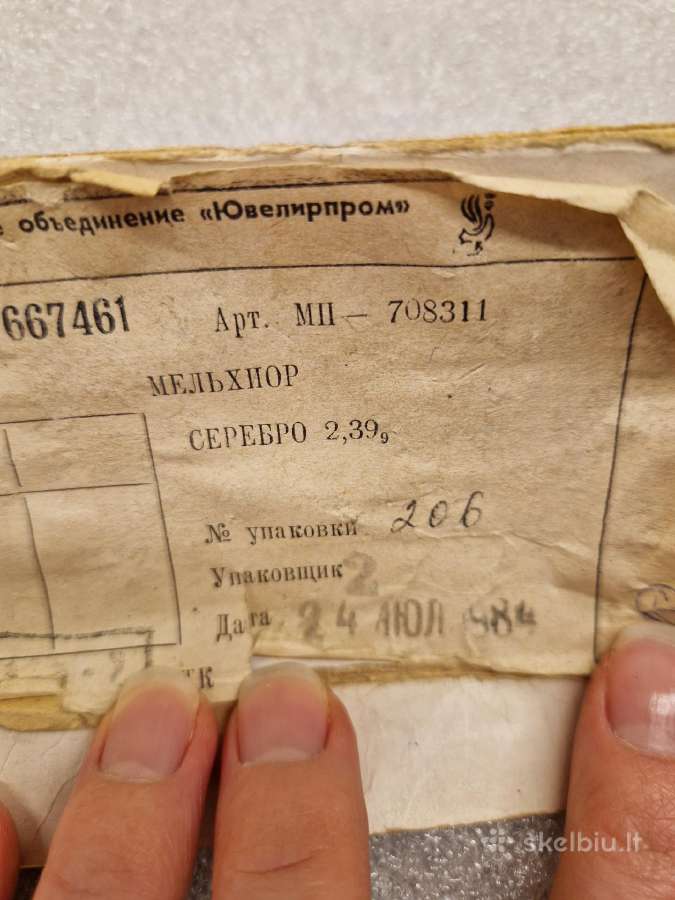 объединение «Ювелирпром»
667461 Арт. МП — 708311
МЕЛЬХИОР
СЕРЕБРО 2,39₉
№ упаковки 206
Упаковщик 2
Дата 24 ИЮЛ 1984
ТК
skelbiu.lt